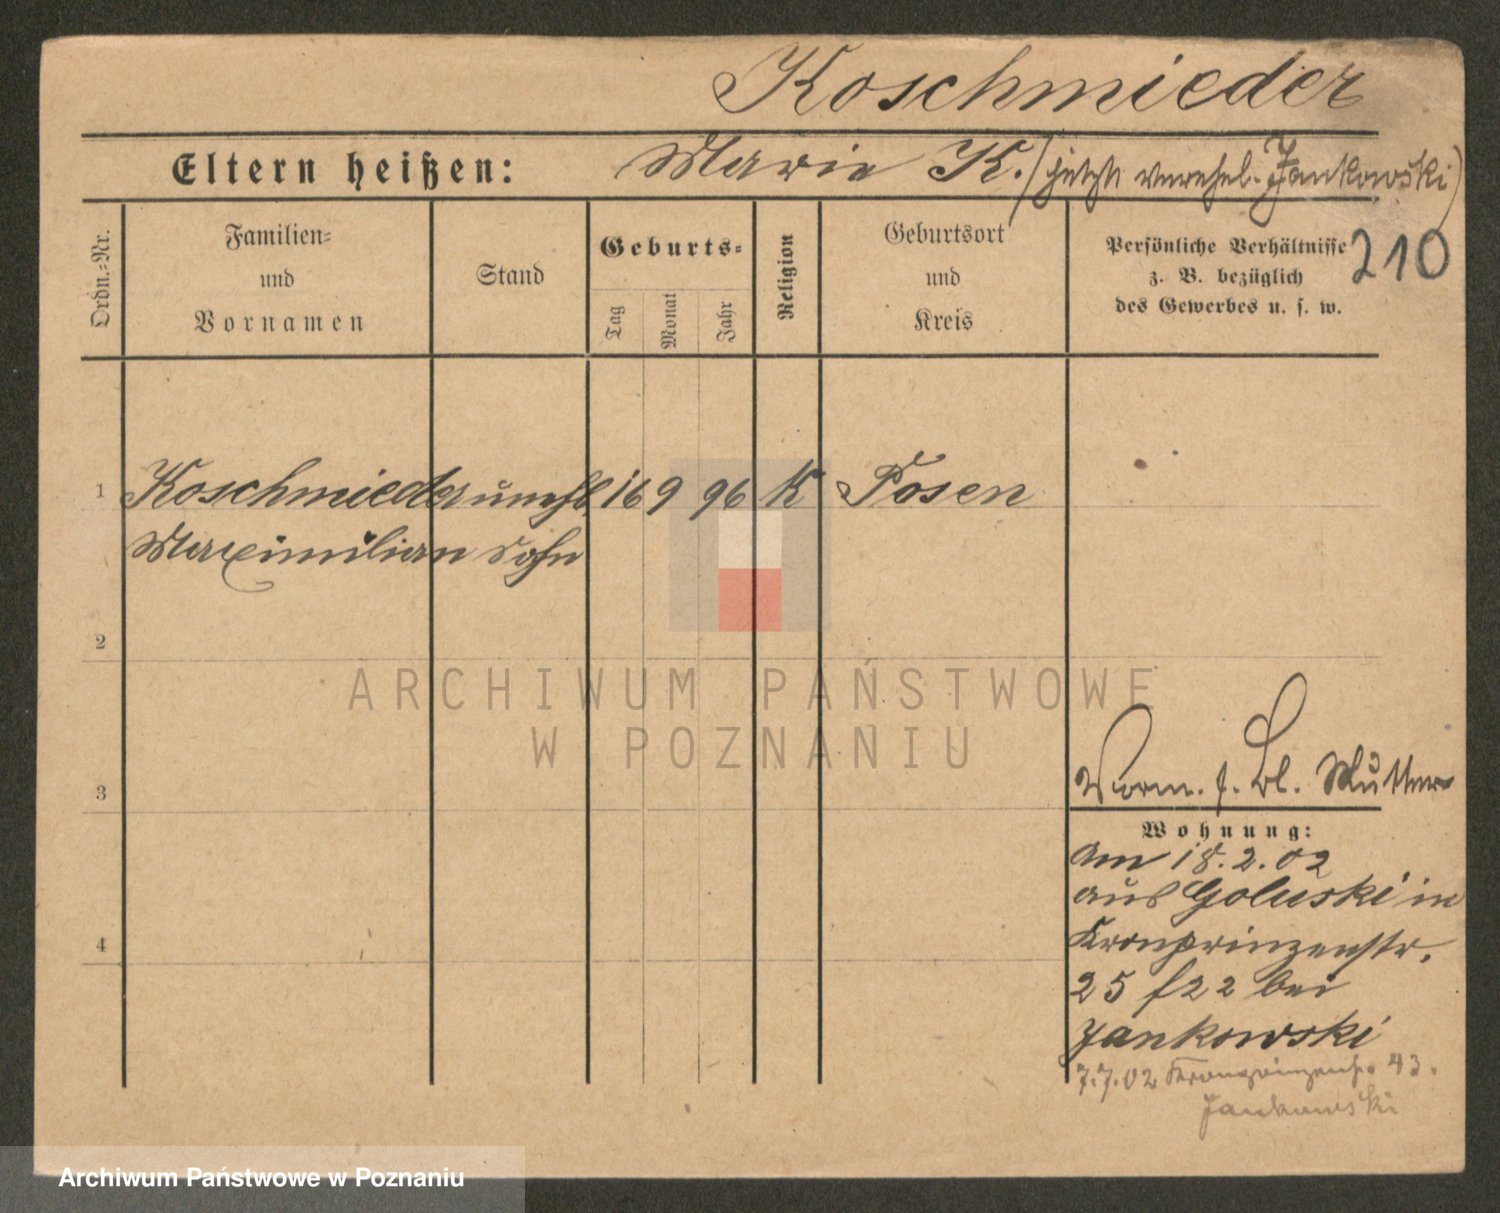 Koschmieder
Eltern heißen: Marie K. (jetzt verehel. Jankowski)
Ordn.-Nr.
Familien-
und
Vornamen
Stand
Geburts-
Tag
Monat
Jahr
Religion
Geburtsort
und
Kreis
Persönliche Verhältnisse
z. B. bezüglich
des Gewerbes u. s. w.
210
1 Koschmieder unehl. 16 9 96 K Posen
Maximilian Sohn
2
ARCHIWUM PAŃSTWOWE
W POZNANIU
3
Vorm. s. Bl. Mutter
Wohnung:
am 18.2.02
aus Goluski in
4
Kronprinzenstr.
25 f22 bei
Jankowski
7.7.02 Kronprinzenstr. 43.
Jankowski
Archiwum Państwowe w Poznaniu